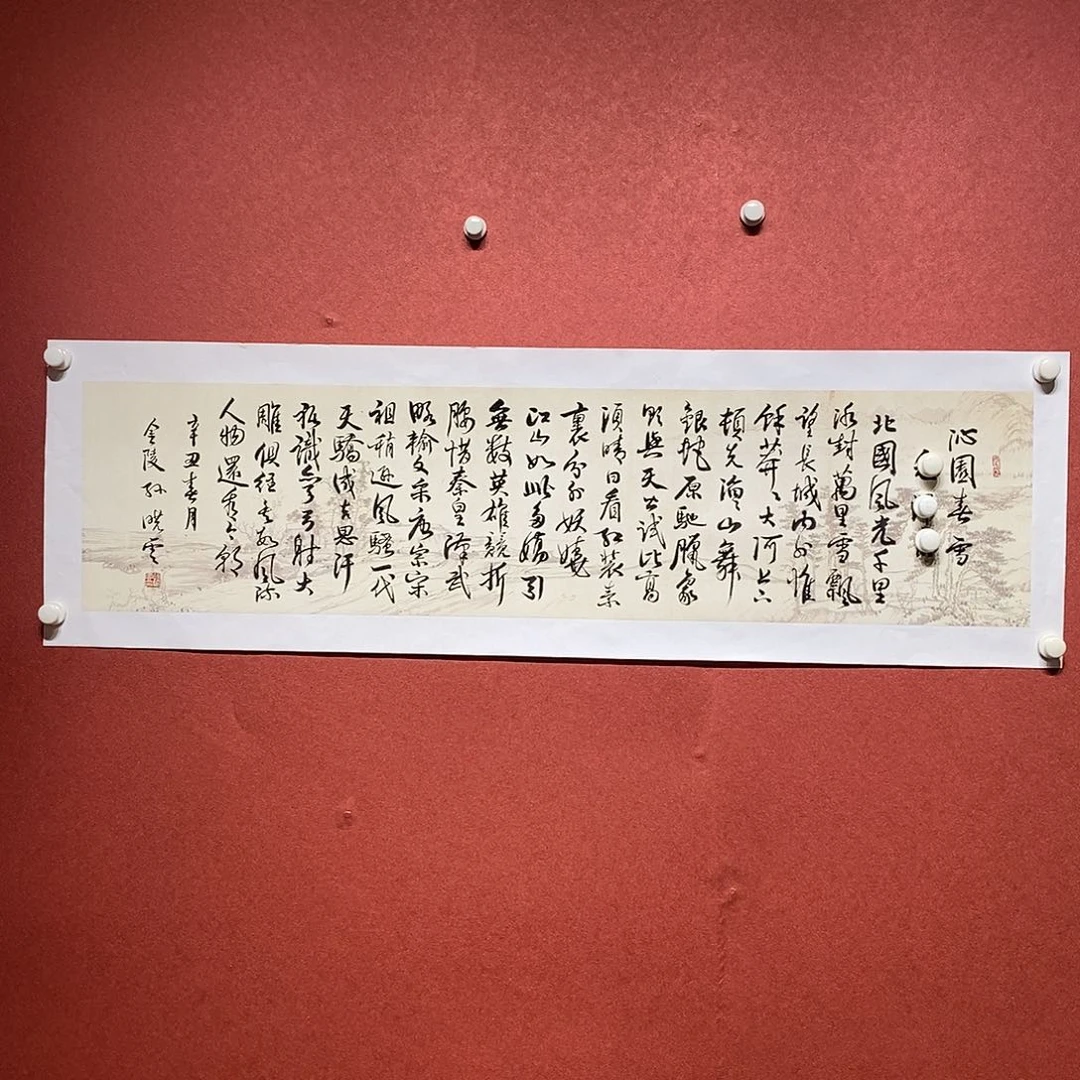 沁園春雪
北國風光千里
冰封萬里雪飄
望長城內外惟
餘莽〻大河上下
頓失滔〻山舞
銀蛇原馳臘象
欲與天公試比高
須晴日看紅裝素
裹分外妖嬈
江山如此多嬌引
無數英雄競折
腰惜秦皇漢武
略輸文采唐宗宋
祖稍遜風騷一代
天驕成吉思汗
祇識彎弓射大
雕俱往矣數風流
人物還看今朝
辛丑春月
金陵孫曉雲